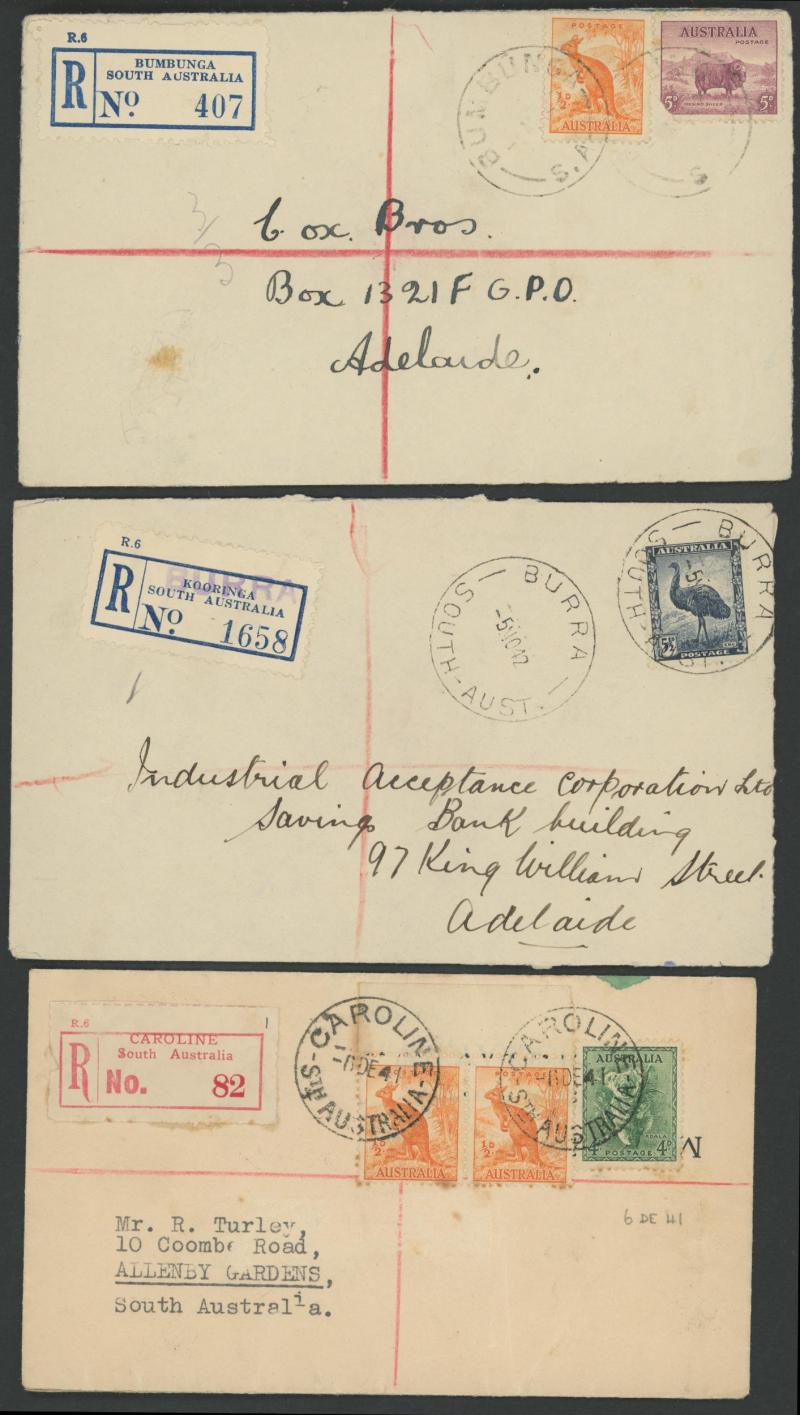 R.6
BUMBUNGA
SOUTH AUSTRALIA
R No 407
POSTAGE
½D
AUSTRALIA
AUSTRALIA
POSTAGE
5D MERINO SHEEP 5D
BUMBUNGA
S.A
S
3/3
Cox. Bros.
Box 1321F G.P.O.
Adelaide.
R.6
BURRA
KOORINGA
SOUTH AUSTRALIA
R No 1658
BURRA
-5NO42
SOUTH-AUST.
BURRA
SOUTH-AUST.
AUSTRALIA
5½D EMU
POSTAGE
Industrial Acceptance Corporation Ltd
Savings Bank building
97 King William Street.
Adelaide
R.6
1
CAROLINE
South Australia
R No. 82
CAROLINE
-6DE41
STH AUSTRALIA
CAROLINE
-6DE41
STH AUSTRALIA
POSTAGE
½D
AUSTRALIA
POSTAGE
½D
AUSTRALIA
AUSTRALIA
KOALA
4D 4D
POSTAGE
N
6 DE 41
Mr. R. Turley,
10 Coombe Road,
ALLENBY GARDENS,
South Australia.